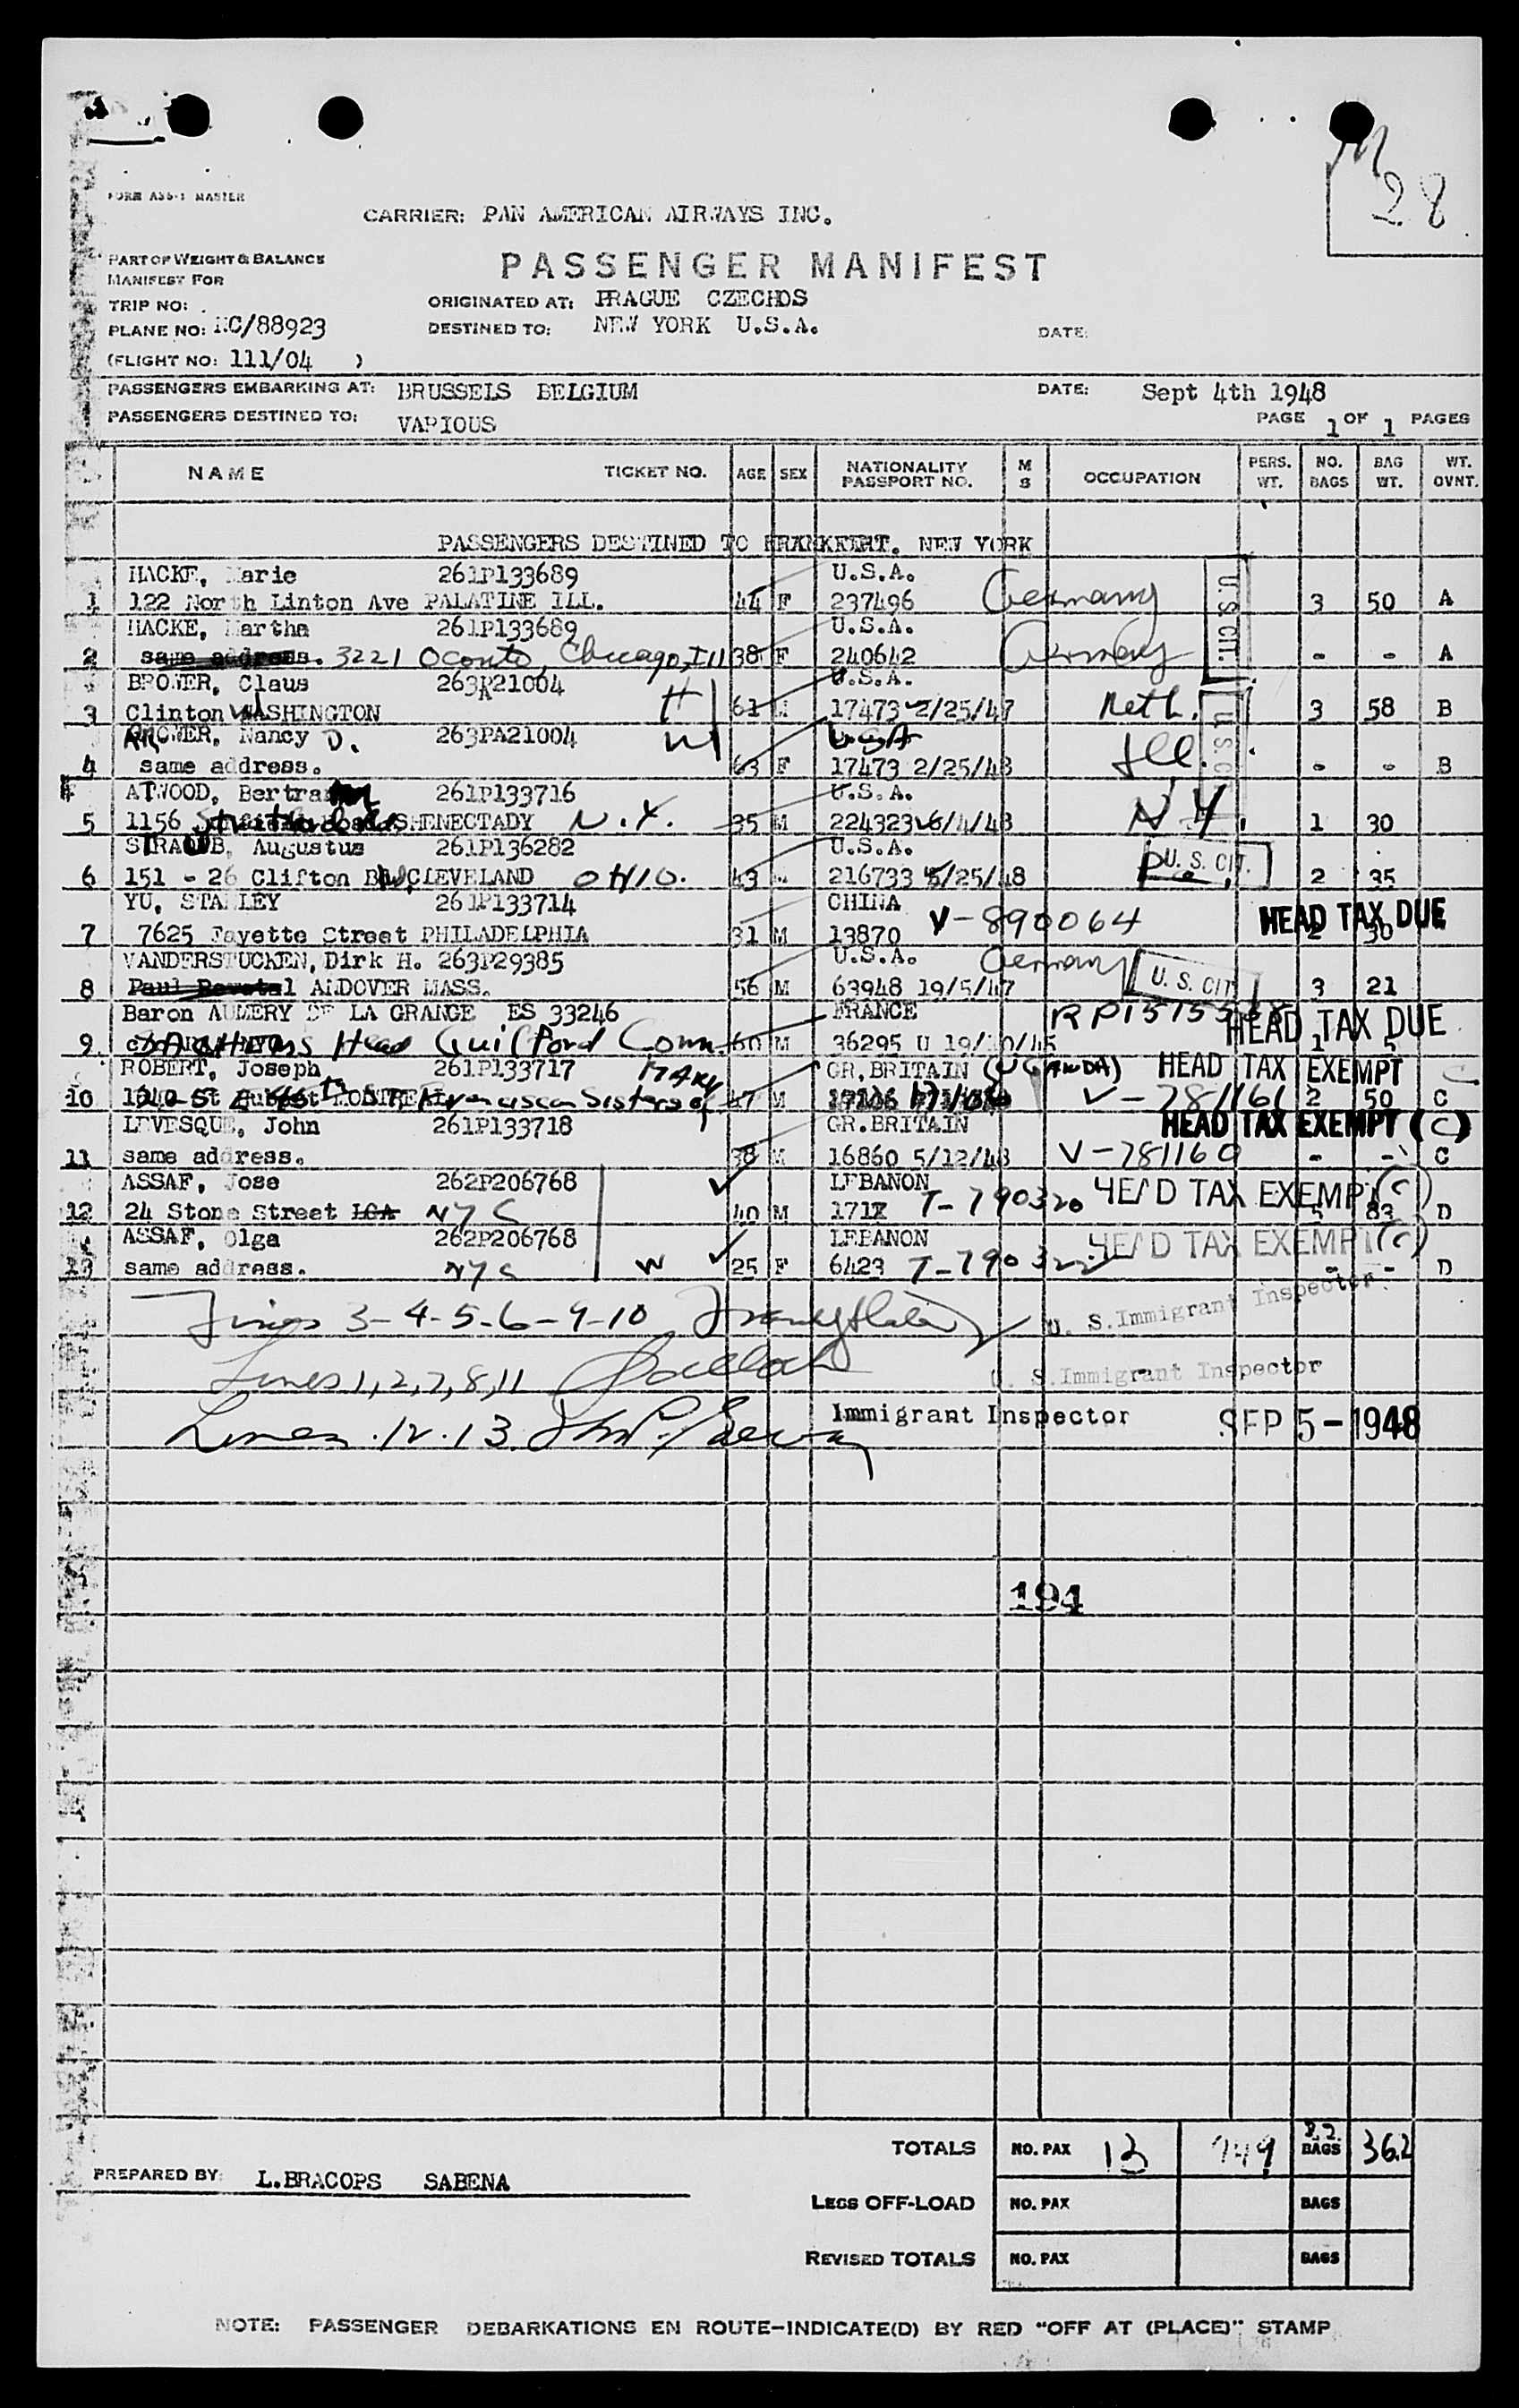 M
28
FORM ASS-1 MASTER
CARRIER: PAN AMERICAN AIRWAYS INC.
PART OF WEIGHT & BALANCE
MANIFEST FOR
PASSENGER MANIFEST
TRIP NO:
ORIGINATED AT: PRAGUE CZECHOS
PLANE NO: NC/88923
DESTINED TO: NEW YORK U.S.A.
DATE:
(FLIGHT NO: 111/04 )
PASSENGERS EMBARKING AT: BRUSSELS BELGIUM DATE: Sept 4th 1948
PASSENGERS DESTINED TO: VARIOUS PAGE 1 OF 1 PAGES
NAME TICKET NO. AGE SEX NATIONALITY PASSPORT NO. M S OCCUPATION PERS. WT. NO. BAGS BAG WT. WT. OVNT.
PASSENGERS DESTINED TO NEW YORK
HACKE, Marie 261P133689 U.S.A.
1 122 North Linton Ave PALATINE ILL. 44 F 237496 Germany U.S. CIT. 3 50 A
HACKE, Martha 261P133689 U.S.A.
2 same address. 3221 Oconto, Chicago, Ill 38 F 240642 Germany - - A
BROWER, Claus 263PA21004 H U.S.A.
3 Clinton WASHINGTON 61 M 17473 2/25/47 Neth. U.S. 3 58 B
BROWER, Nancy D. 263PA21004 W USA
4 same address. 63 F 17473 2/25/48 Ill. - - B
ATWOOD, Bertram 261P133716 U.S.A.
5 1156 SHENECTADY N.Y. 35 M 224323 6/4/48 N.Y. 1 30
STRAUB, Augustus 261P136282 U.S.A.
6 151 - 26 Clifton Blvd, CLEVELAND OHIO. 43 216733 5/25/48 U. S. CIT. 2 35
YU, STANLEY 261P133714 CHINA
7 7625 Fayette Street PHILADELPHIA 31 M 13870 V-890064 HEAD TAX DUE 2 30
VANDERSTUCKEN, Dirk H. 263P29385 U.S.A.
8 ANDOVER MASS. 56 M 63948 19/5/47 Germany U. S. CIT. 3 21
Baron AUMERY DE LA GRANGE ES 33246 FRANCE
9 Sachems Head Guilford Conn. 60 M 36295 U HEAD TAX DUE 1 5
ROBERT, Joseph 261P133717 GR. BRITAIN (UGANDA) HEAD TAX EXEMPT C
10 Franciscan Sisters of Mary 47 M V-781161 2 50 C
LEVESQUE, John 261P133718 GR.BRITAIN HEAD TAX EXEMPT (C)
11 same address. 38 M 16860 5/12/48 V-781160 - - C
ASSAF, Jose 262P206768 LEBANON
12 24 Stone Street NYC 40 M T-790320 HEAD TAX EXEMPT (C) 5 83 D
ASSAF, Olga 262P206768 LEBANON
13 same address. NYC W 25 F 6423 T-790322 HEAD TAX EXEMPT (C) - - D
Lines 3-4-5-6-9-10 U. S. Immigrant Inspector
Lines 1,2,7,8,11 U. S. Immigrant Inspector
Lines 12.13 Immigrant Inspector SEP 5 - 1948
194
TOTALS NO. PAX 13 BAGS 362
PREPARED BY: L.BRACOPS SABENA
LEGS OFF-LOAD NO. PAX BAGS
REVISED TOTALS NO. PAX BAGS
NOTE: PASSENGER DEBARKATIONS EN ROUTE-INDICATE(D) BY RED "OFF AT (PLACE)" STAMP